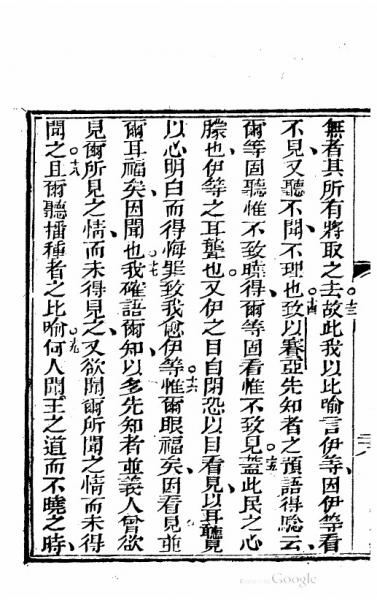 無者其所有將取之去故此我以比喻言伊等因伊等看
不見又聽不聞不理也致以賽亞先知者之預語得騐云
爾等固聽惟不致曉得爾等固看惟不致見蓋此民之心
朦也伊等之耳聾也又伊之目自閉恐以目看見以耳聽見
以心明白而得悔罪致我愈伊等惟爾眼福矣因看見並
爾耳福矣因聞也我確語爾知以多先知者並義人曾欲
見爾所見之情而未得見之又欲聞爾所聞之情而未得
聞之且爾聽播種者之比喻何人聞王之道而不曉之時
十三
十四
十五
十六
十七
十八
十九
Google